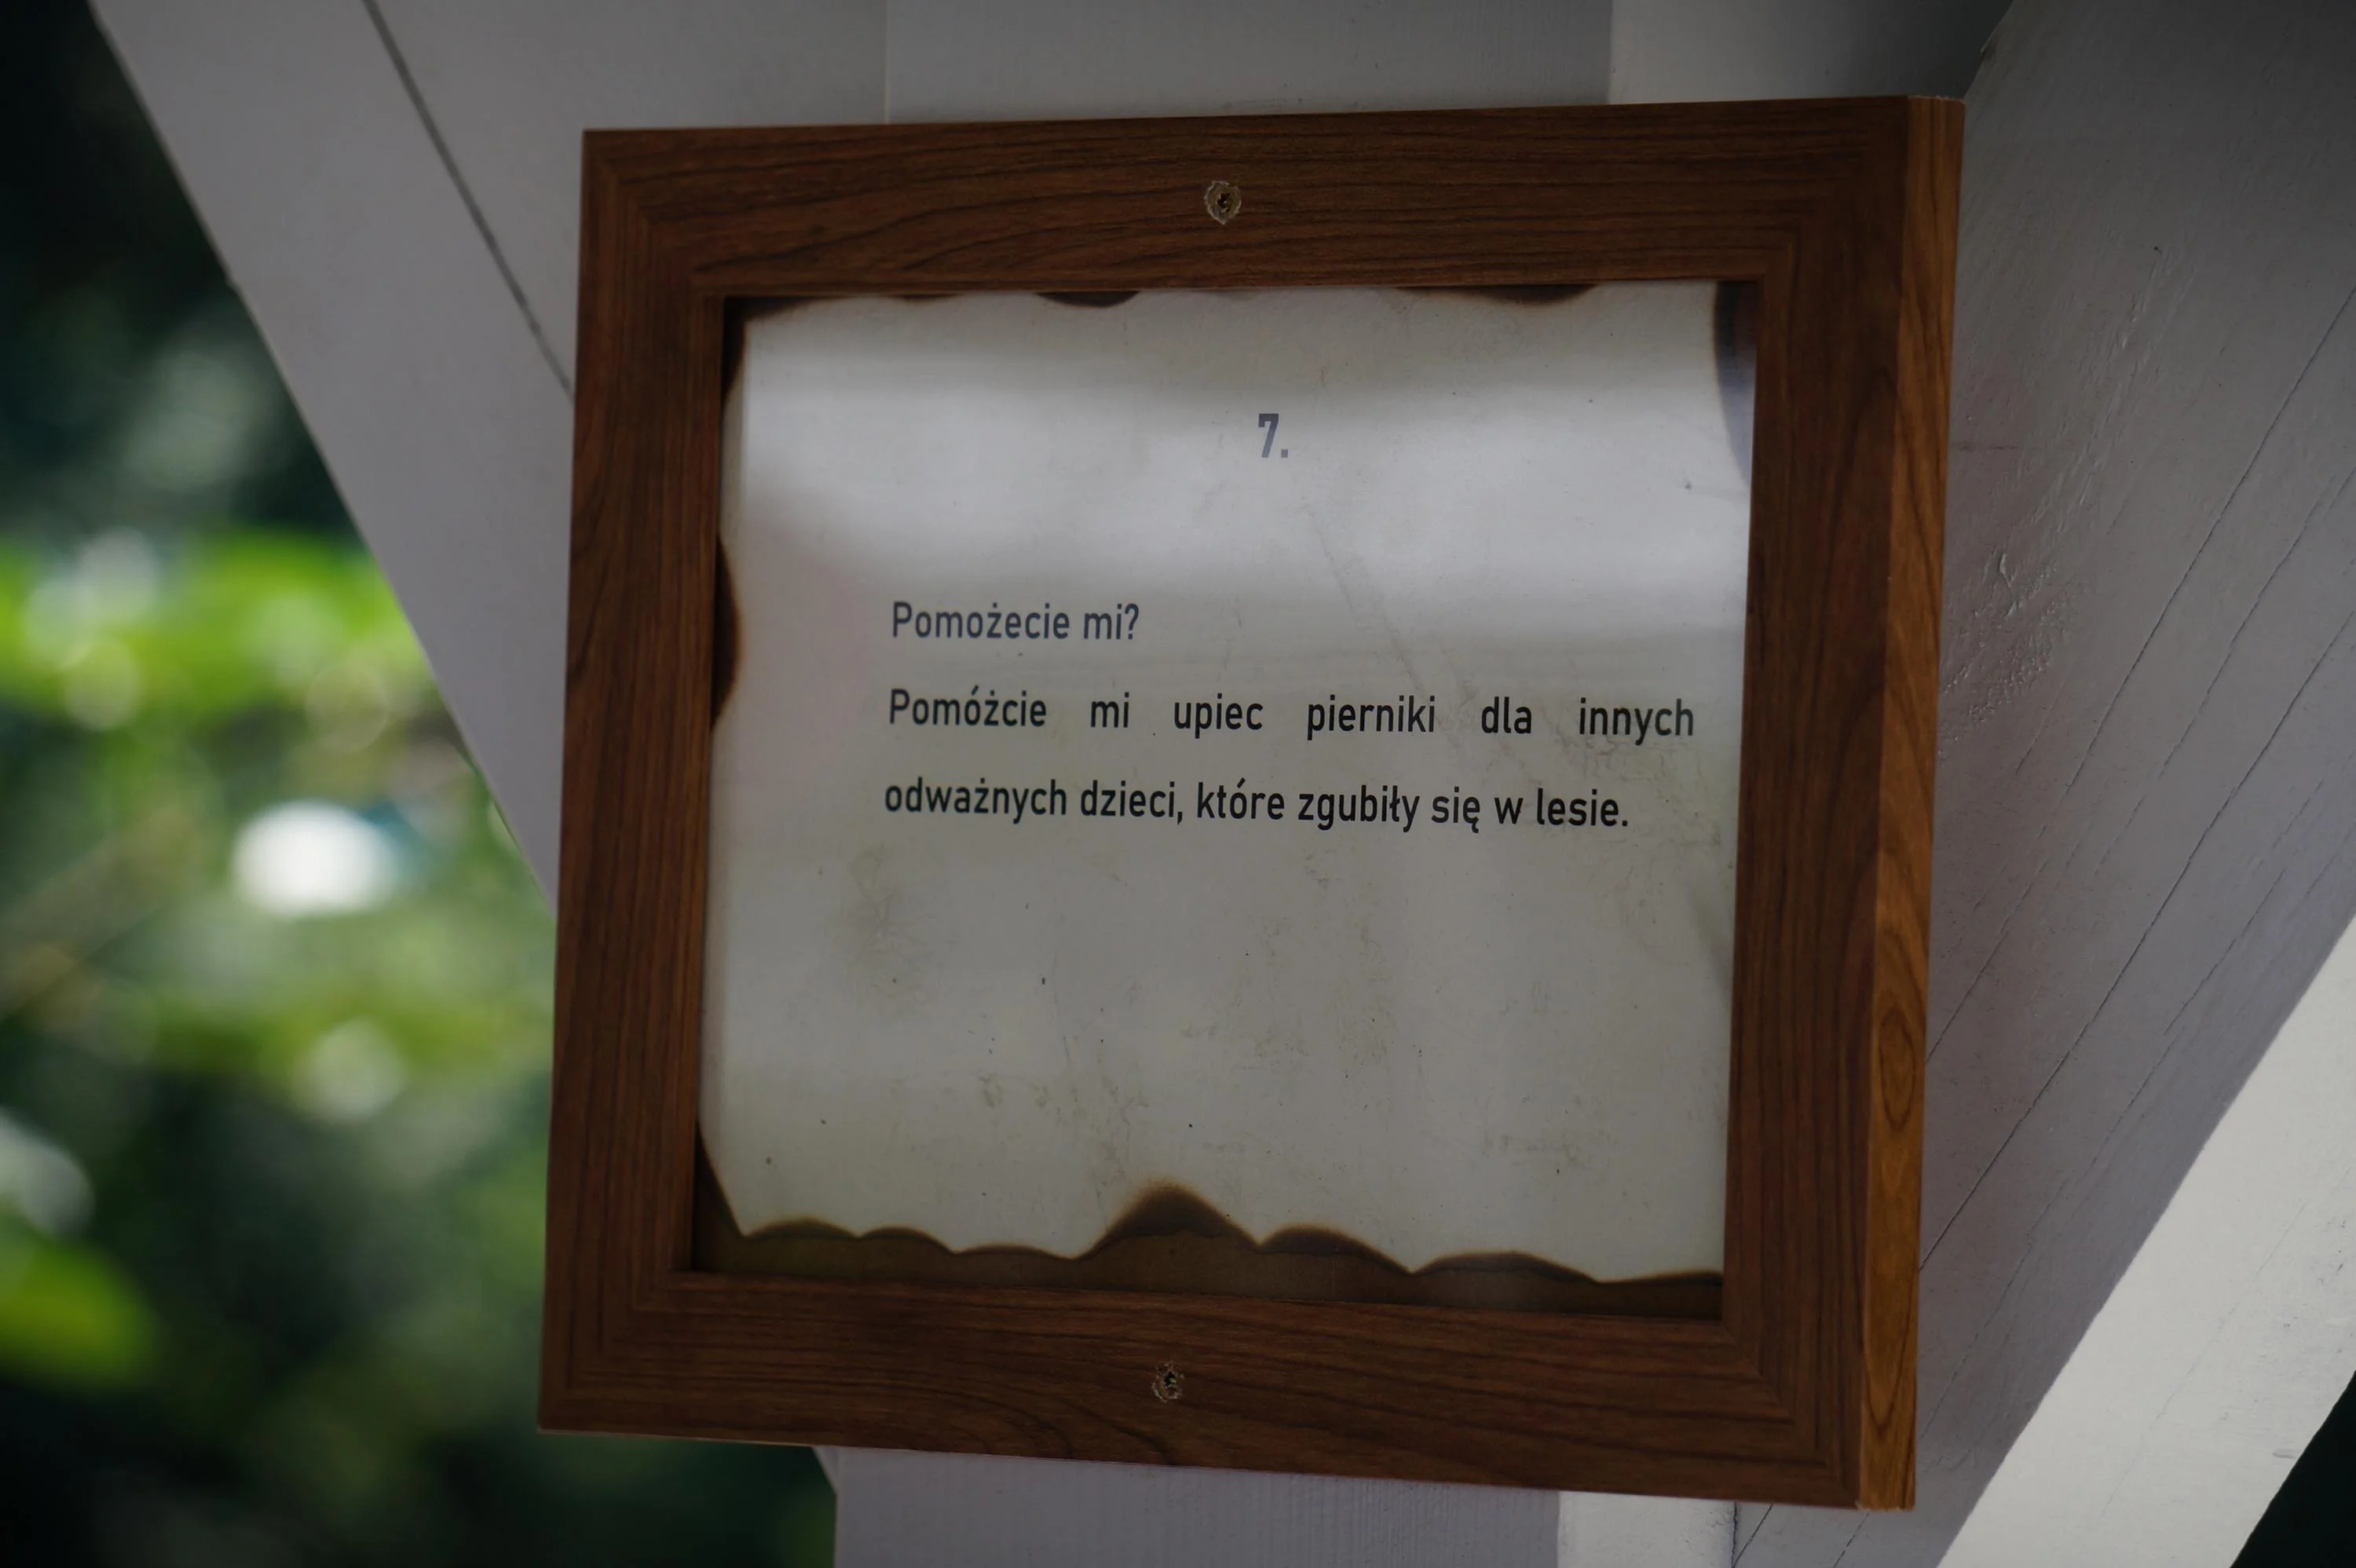 7.
Pomożecie mi?
Pomóżcie mi upiec pierniki dla innych
odważnych dzieci, które zgubiły się w lesie.